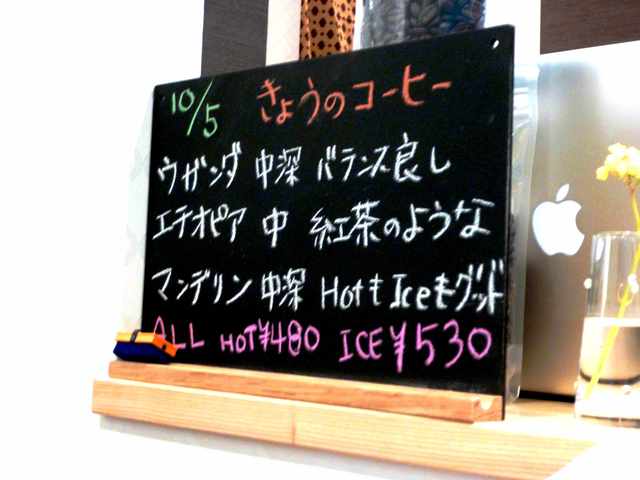 10/5 きょうのコーヒー
ウガンダ 中深 バランス良し
エチオピア 中 紅茶のような
マンデリン 中深 HotもIceもグッド
ALL HOT¥480 ICE¥530